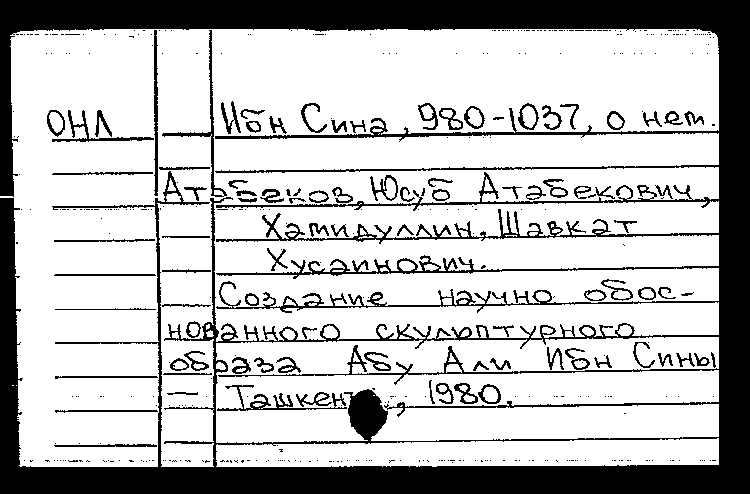 ОНЛ Ибн Сина, 980-1037, о нем.
Атабеков, Юсуб Атабекович,
Хамидуллин, Шавкат
Хусаинович.
Создание научно обос-
нованного скульптурного
образа Абу Али Ибн Сины
— Ташкент, 1980.